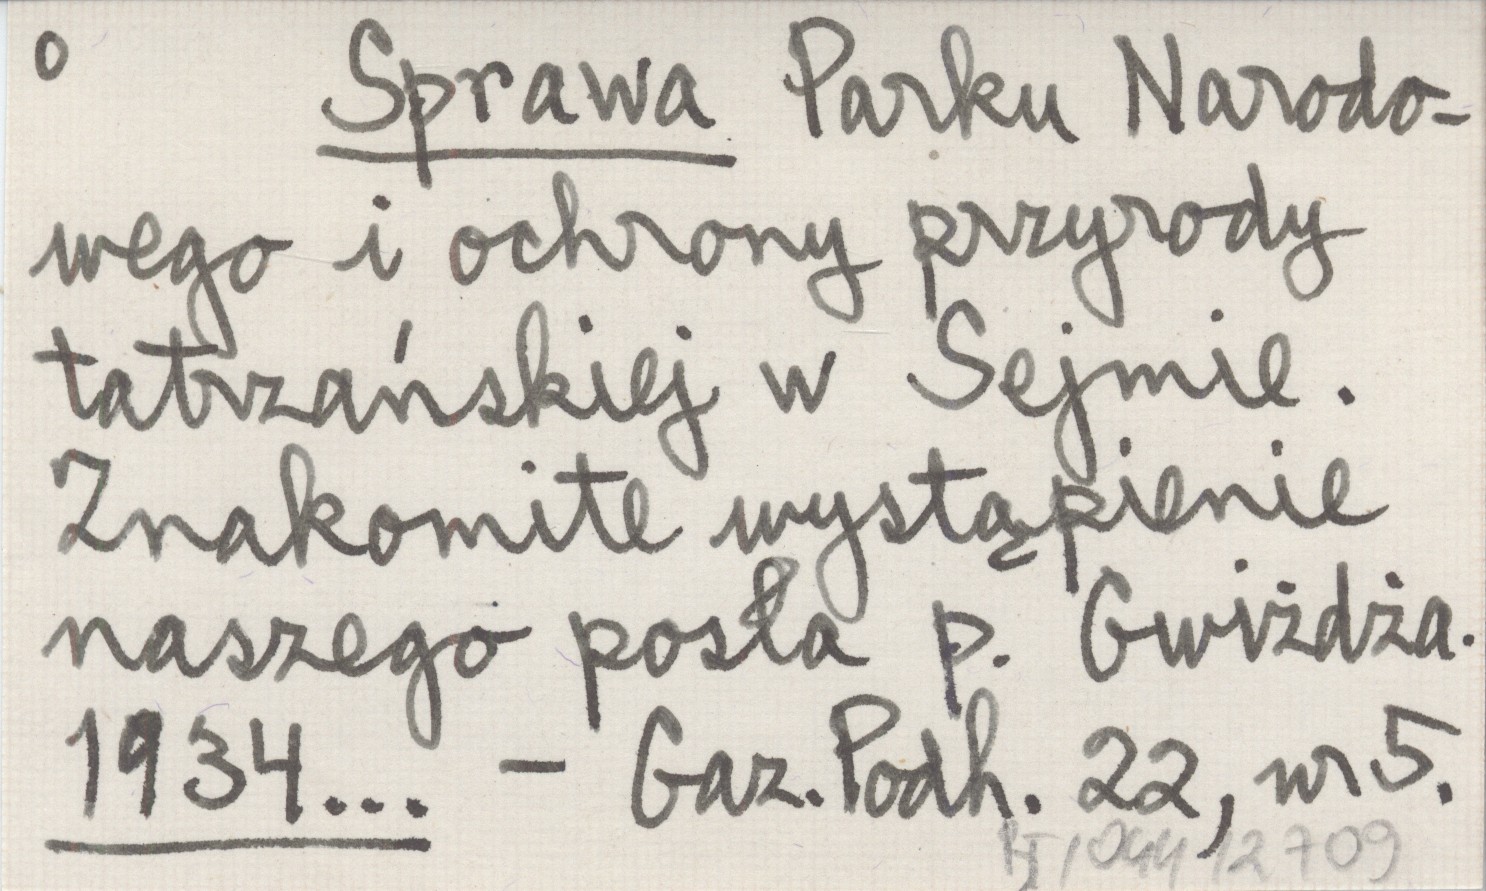 o Sprawa Parku Narodo-
wego i ochrony przyrody
tatrzańskiej w Sejmie.
Znakomite wystąpienie
naszego posła p. Gwiżdża.
1934... - Gaz. Podh. 22, nr 5.
12709